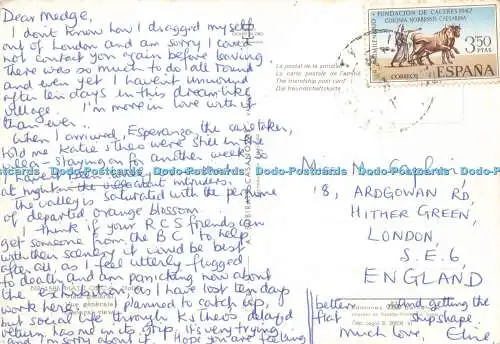 Dear Medge,
I don't know how I dragged myself
out of London and am sorry I could
not contact you again before leaving.
There was so much to do all round
and even yet I haven't unwound
after ten days in this dreamlike
village. I'm more in love with it
than ever.
When I arrived, Esperanza the caretaker,
told me Katie & Theo were still in the
staying on for another week so
at night
The valley is saturated with the perfume
of departed orange blossom.
I think if your R C S friends can
get someone from the B C to help
with their scenery it would be best
after all, as I feel utterly flogged
to death and am panicking now about
the exhibition as I have lost ten days
work here. I planned to catch up,
but social life through K & Theo's delayed
return has me in its grip, it's very trying
and I'm sorry about it. Hope you are feeling
better and getting the
flat shipshape
Much love, Eline.
La carte postale de l'amitié
The friendship post card
Die freundschaftskarte
18, ARDGOWAN RD,
HITHER GREEN,
LONDON,
S.E.6,
ENGLAND
BIMILENARIO
FUNDACION DE CACERES 1967
COLONIA NORBENSIS CAESARINA
3,50
PTAS
CORREOS
ESPAÑA
Data-Postcards